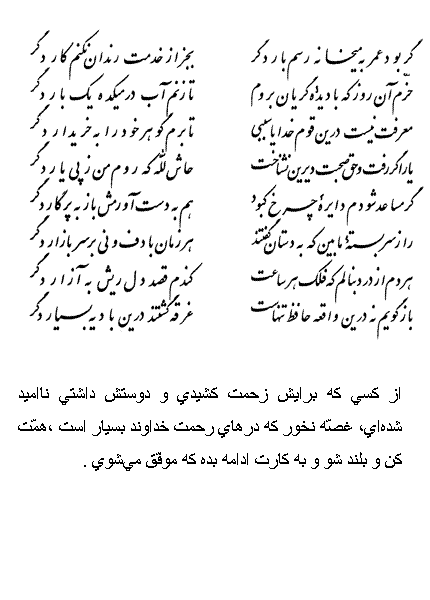 گر بود عمر به میخانه رسم بار دگر بجز از خدمت رندان نکنم کار دگر
خرّم آن روز که با دیده گریان بروم تا زنم آب در میکده یک بار دگر
معرفت نیست درین قوم خدایا سببی تا برم گوهر خود را به خریدار دگر
یار اگر رفت و حق صحبت دیرین نشناخت حاش لله که روم من ز پی یار دگر
گر مساعد شودم دایرهٔ چرخ کبود هم به دست آورمش باز به پرگار دگر
راز سربستهٔ ما بین که به دستان گفتند هر زمان با دف و نی بر سر بازار دگر
هر دم از درد بنالم که فلک هر ساعت کندم قصد دل ریش به آزار دگر
باز گویم نه درین واقعه حافظ تنهاست غرقه گشتند درین بادیه بسیار دگر
از كسي كه برايش زحمت كشيدي و دوستش داشتي نااميد
شده‌اي، غصّه نخور كه درهاي رحمت خداوند بسيار است ،همّت
كن و بلند شو و به كارت ادامه بده كه موفق مي‌شوي .